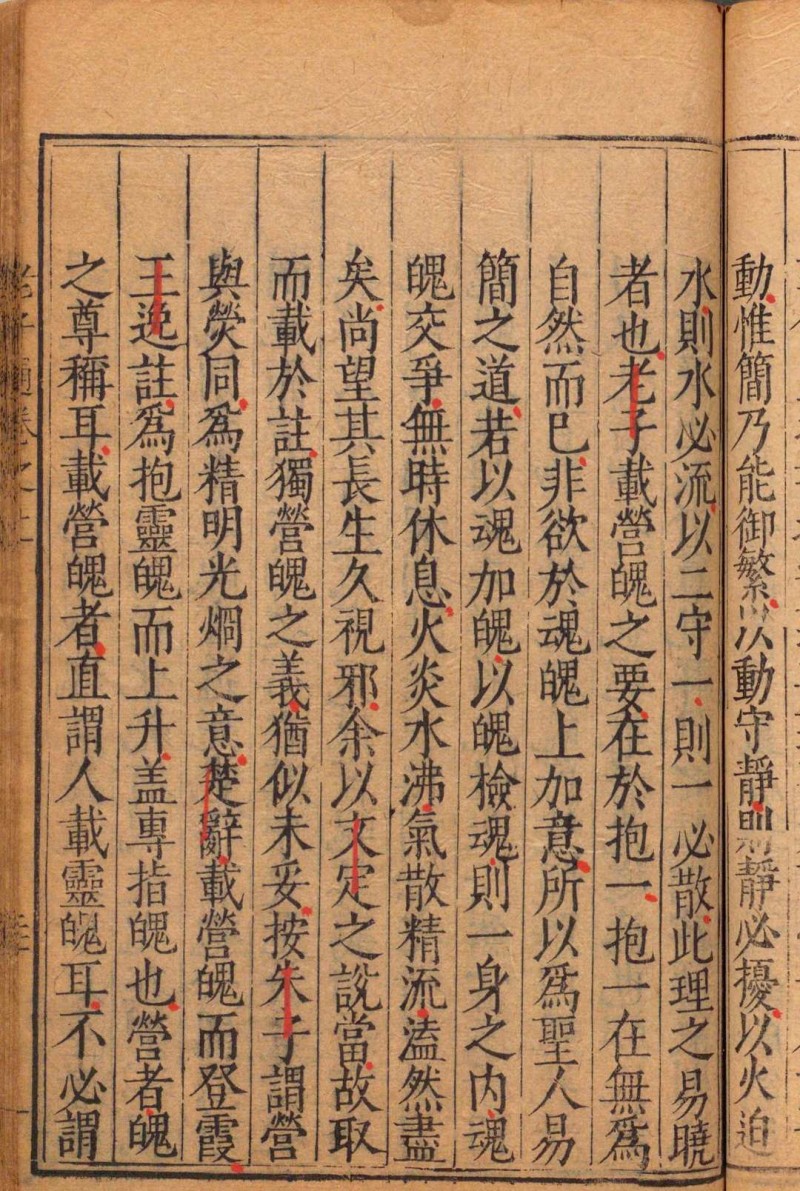 動惟簡乃能御繁以動守靜則靜必擾以火迫
水則水必流以二守一則一必散此理之易曉
者也老子載營魄之要在於抱一抱一在無爲
自然而已非欲於魂魄上加意所以爲聖人易
簡之道若以魂加魄以魄檢魂則一身之内魂
魄交爭無時休息火炎水沸氣散精流溘然盡
矣尚望其長生久視邪余以文定之說當故取
而載於註獨營魄之義猶似未妥按朱子謂營
與熒同爲精明光烱之意楚辭載營魄而登霞
王逸註爲抱靈魄而上升盖專指魄也營者魄
之尊稱耳載營魄者直謂人載靈魄耳不必謂
老子通卷之上